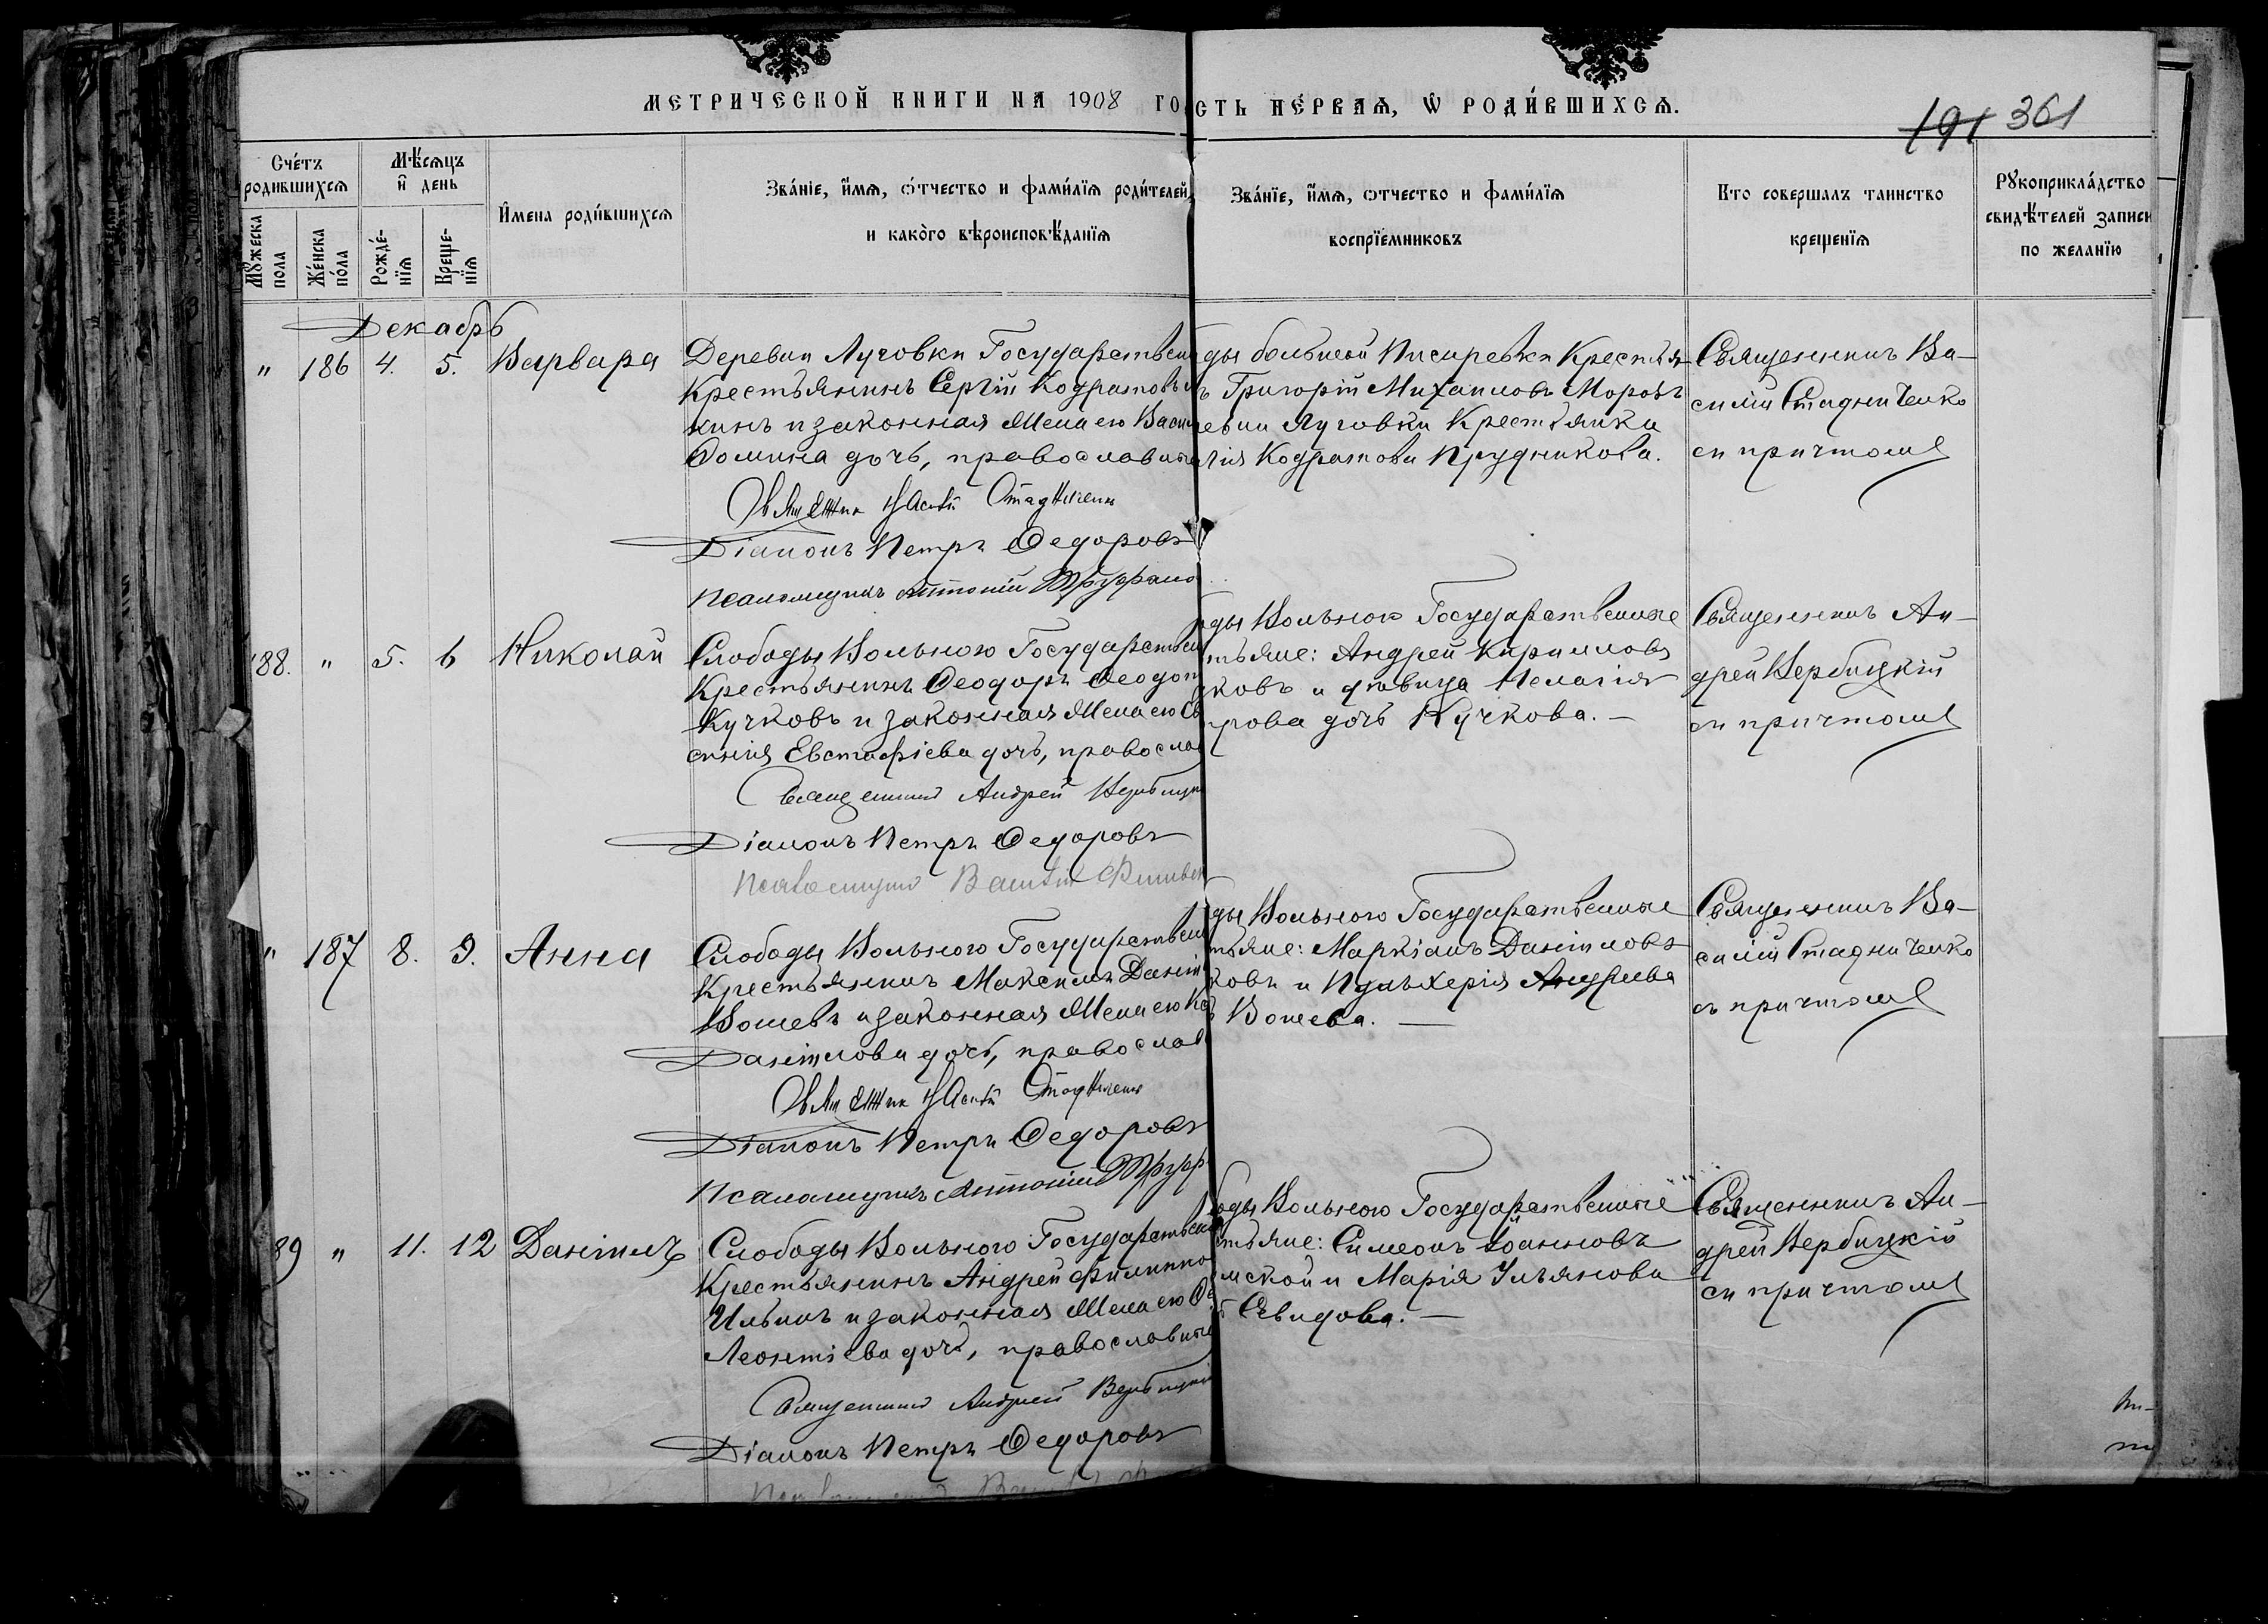 МЕТРИЧЕСКОЙ КНИГИ НА 1908 ГО
СТЬ ПЕ́РВАѦ, Ѡ РОДИ́ВШИХСѦ.
191 361
Сче́тъ родившихсѧ
Мѣ́сѧцъ и҆ день
Мꙋ́жеска пола
Же́нска по́ла
Рожде́-нїѧ
Креще-нїѧ
И҆мена роди́вшихсѧ
Зва́нїе, и҆́мѧ, ѻ҆́тчество и фами́лїѧ роди́телей,
и како́го вѣроисповѣ́данїѧ
Зва́нїе, и҆́мѧ, ѻтчество и фами́лїѧ
воспрїе́мниковъ
Кто совершалъ таинство
крещенїѧ
Рꙋкоприкла́дство
свидѣ́телей записи
по желанїю
Декабрь
" 186 4. 5. Варвара
Деревни Луговки Государствен
Крестьянинъ Сергій Кодратовъ
кинъ и законная Жена его Васи
Ѳомина дочь, православны
Священник Василій Стадниченк
Діаконъ Петръ Ѳедоровъ
Псаломщикъ Антоній
ды большой Писаревки Крестья
ъ Григорій Михаиловъ Моровъ
евни Луговки Крестьянка
лія Кодратова Прудникова.
Священникъ Ва-
силій Стадниченко
съ причтомъ
188. " 5. 6 Николай
Слободы Вольного Государствен
Крестьянинъ Ѳеодоръ Ѳеодот
Кучковъ и законная Жена его Ев
синія Евстафіева дочь, правосла
Священникъ Андрей Вербицк
Діаконъ Петръ Ѳедоровъ
Псаломщикъ Василій
ды Вольного Государственные
тьяне: Андрей Кирилловъ
ковъ и дѣвица Пелагія
рова дочь Кучкова. —
Священникъ Ан-
дрей Вербицкій
съ причтомъ
" 187 8. 9. Анна
Слободы Вольного Государствен
Крестьянинъ Максимъ Даніи
Вошевъ и законная Жена его
Даніилова дочь, православ
Священник Василій Стадниченк
Діаконъ Петръ Ѳедоровъ
Псаломщикъ Антоній
ды Вольного Государственные
тьяне: Маркіанъ Даніиловъ
ковъ и Пульхерія Андреева
Вошева. —
Священникъ Ва-
силій Стадниченко
съ причтомъ
89 " 11. 12 Даніилъ
Слободы Вольного Государствен
Крестьянинъ Андрей Филиппо
Ильинъ и законная Жена его
Леонтіева дочь, православны
Священникъ Андрей Вербицкі
Діаконъ Петръ Ѳедоровъ
оды Вольного Государственные
стьяне: Симеонъ Іоанновъ
мской и Марія Ульянова
Свидова. —
Священникъ Ан-
дрей Вербицкій
съ причтомъ